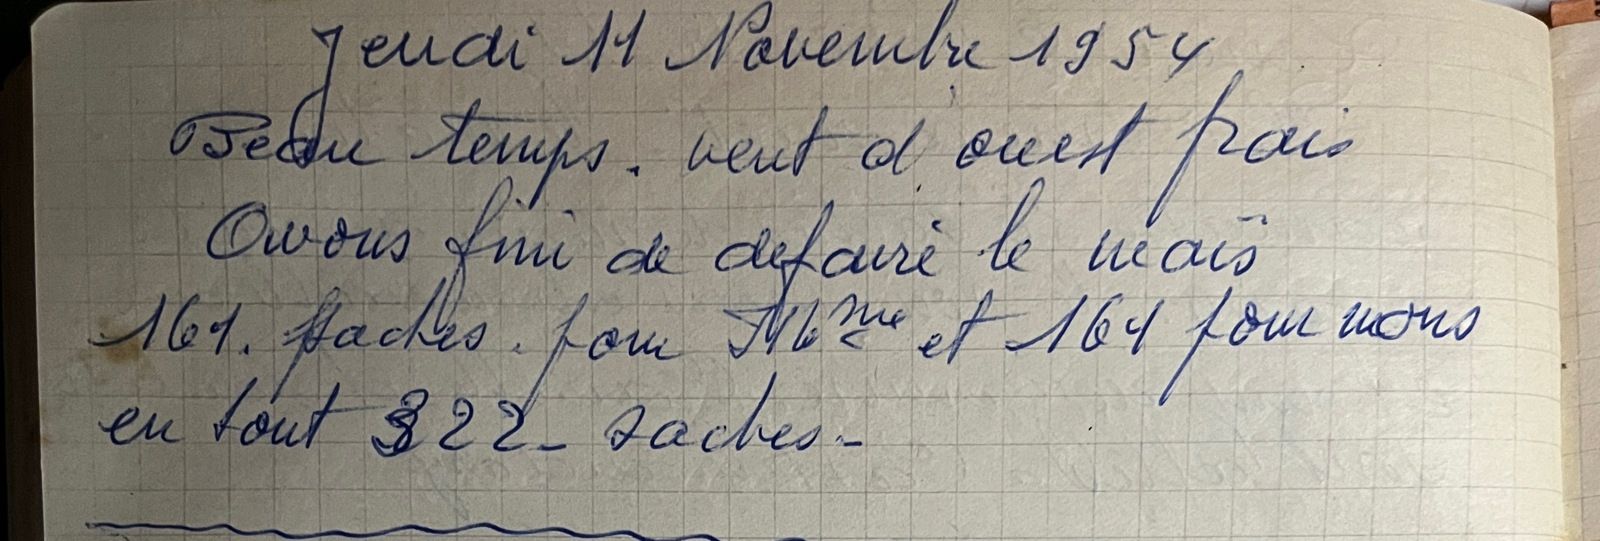 Jeudi 11 Novembre 1954
Beau temps. vent d'ouest frais
Avons fini de defaire le maïs
161. saches. pour Mme et 161 pour nous
en tout 322 - saches -